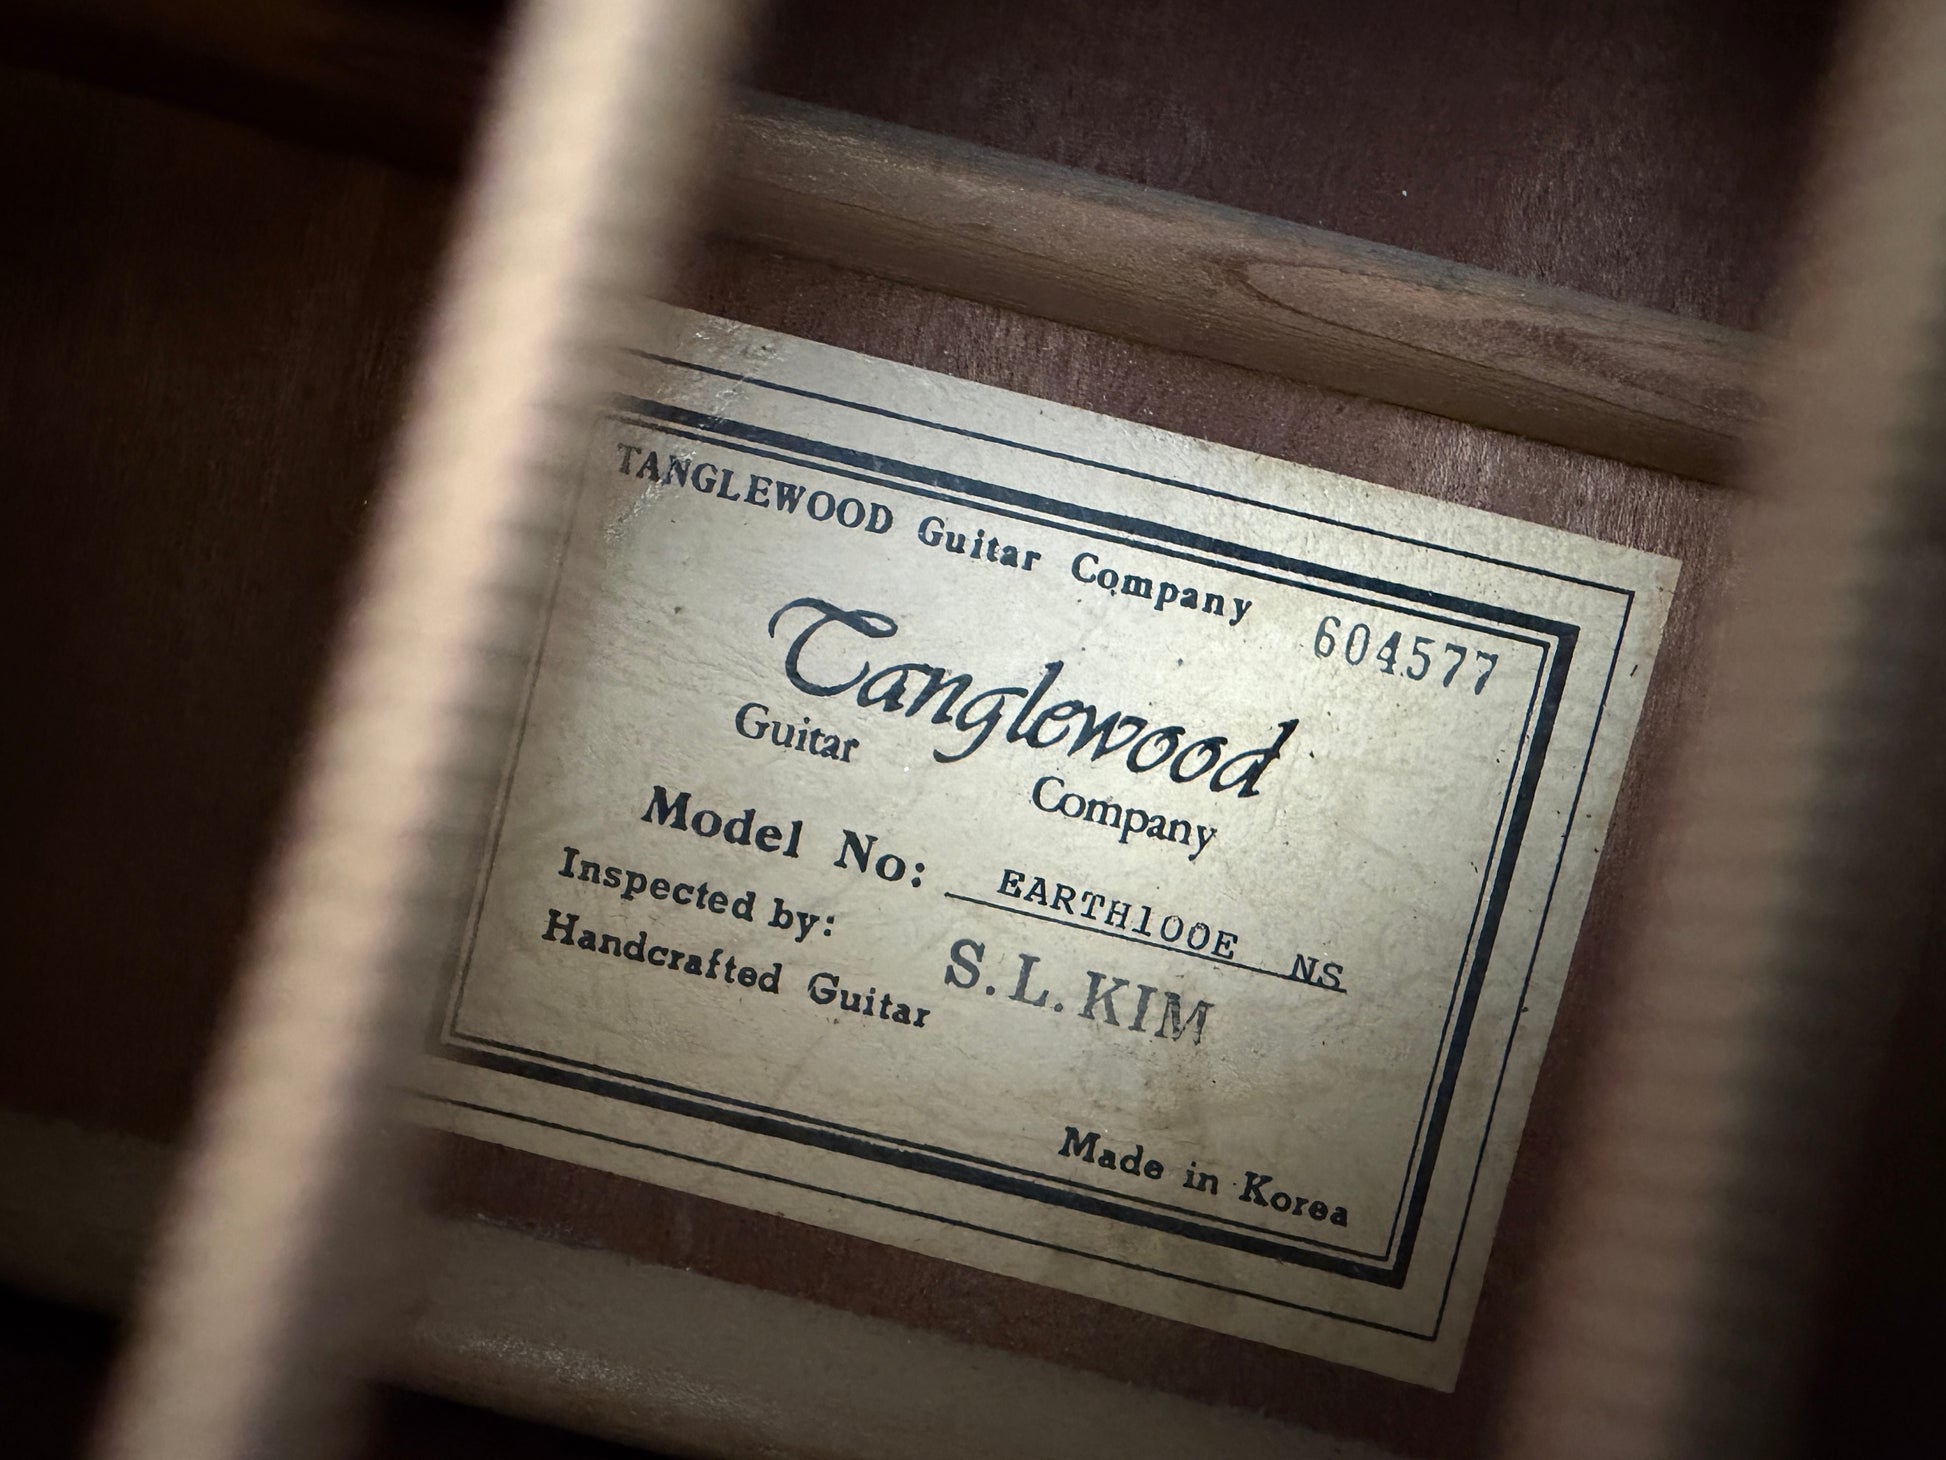 TANGLEWOOD Guitar Company 604577
Tanglewood
Guitar Company
Model No: EARTH100E NS
Inspected by: S. L. KIM
Handcrafted Guitar
Made in Korea